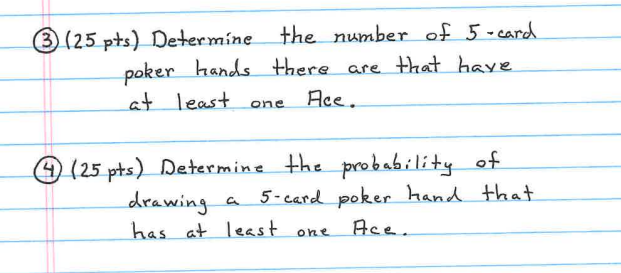 ③ (25 pts) Determine the number of 5-card
poker hands there are that have
at least one Ace.
④ (25 pts) Determine the probability of
drawing a 5-card poker hand that
has at least one Ace.